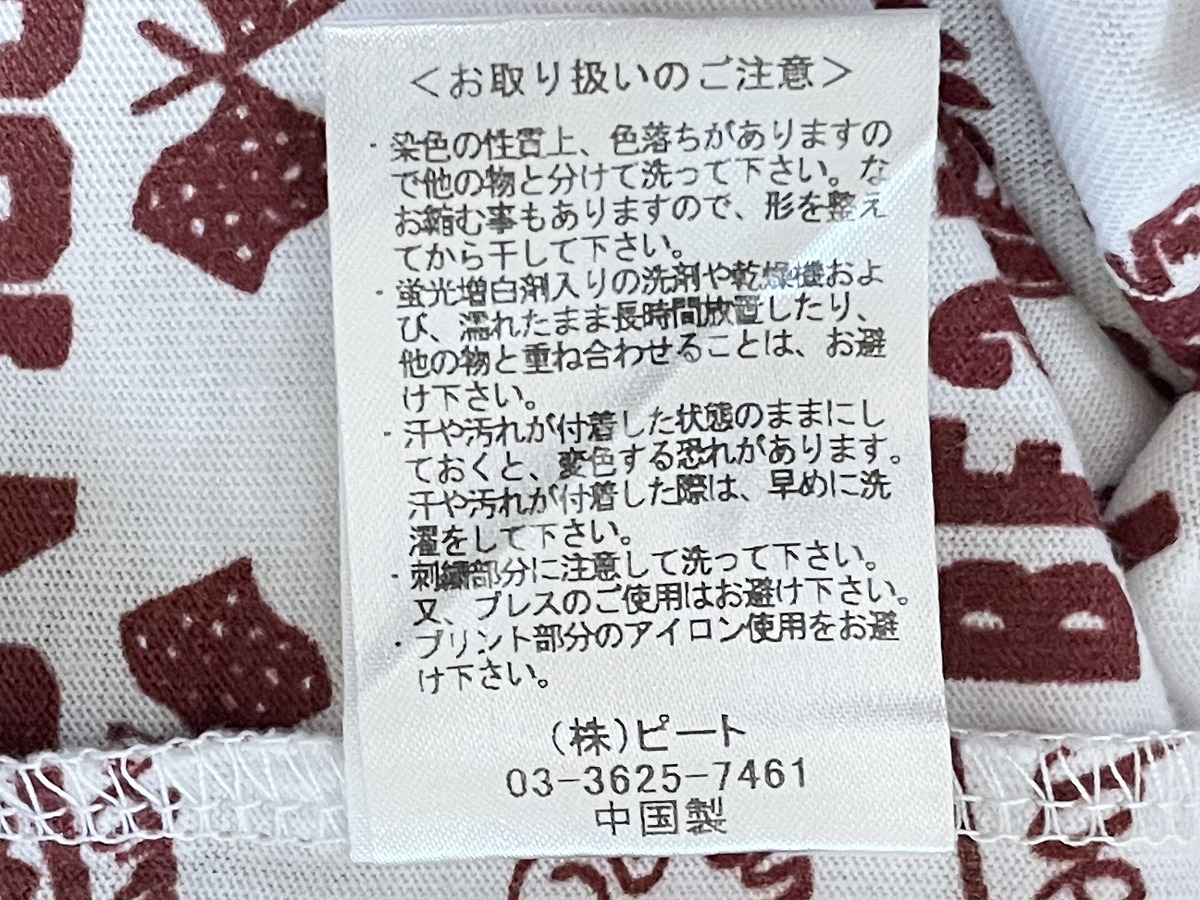 ＜お取り扱いのご注意＞
・染色の性質上、色落ちがありますの
で他の物と分けて洗って下さい。な
お縮む事もありますので、形を整え
てから干して下さい。
・蛍光増白剤入りの洗剤や乾燥機およ
び、濡れたまま長時間放置したり、
他の物と重ね合わせることは、お避
け下さい。
・汗や汚れが付着した状態のままにし
ておくと、変色する恐れがあります。
汗や汚れが付着した際は、早めに洗
濯をして下さい。
・刺繍部分に注意して洗って下さい。
又、プレスのご使用はお避け下さい。
・プリント部分のアイロン使用をお避
け下さい。
(株)ピート
03-3625-7461
中国製